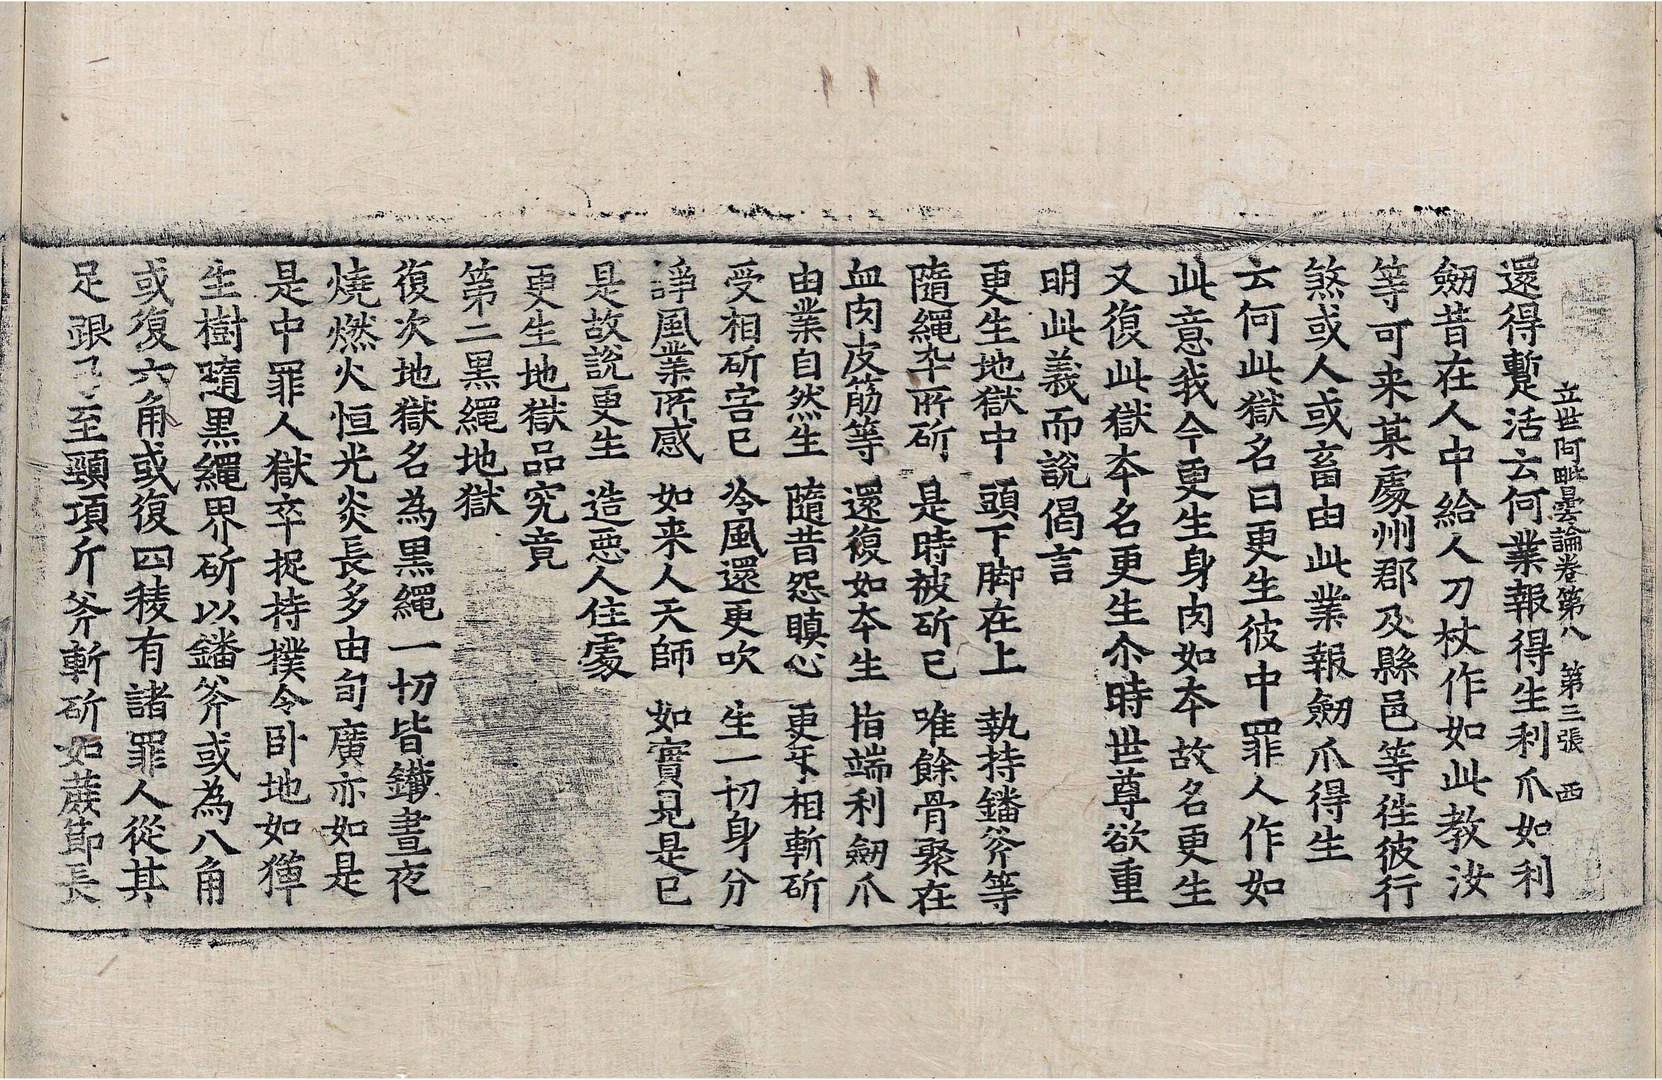 立世阿毗曇論卷第八 第三張 西
還得蹔活云何業報得生利爪如利
劒昔在人中給人刀杖作如此教汝
等可来某處州郡及縣邑等徃彼行
煞或人或畜由此業報劒爪得生
云何此獄名曰更生彼中罪人作如
此意我今更生身肉如夲故名更生
又復此獄夲名更生尒時世尊欲重
明此義而說偈言
更生地獄中 頭下脚在上 執持鐇斧等
隨繩卆所斫 是時被斫已 唯餘骨聚在
血肉皮筋等 還復如夲生 指端利劒爪
由業自然生 隨昔怨瞋心 更㸦相斬斫
受相斫害已 冷風還更吹 生一切身分
諍風業所感 如来人天師 如實見是已
是故說更生 造悪人住處
更生地獄品究竟
第二黒繩地獄
復次地獄名為黒繩一切皆鐵晝夜
燒燃火恒光炎長多由旬廣亦如是
是中罪人獄卒捉持撲令卧地如獐
生樹隨黒繩界斫以鐇斧或為八角
或復六角或復四稜有諸罪人從其
足跟至頸項斤斧斬斫如蔗節長